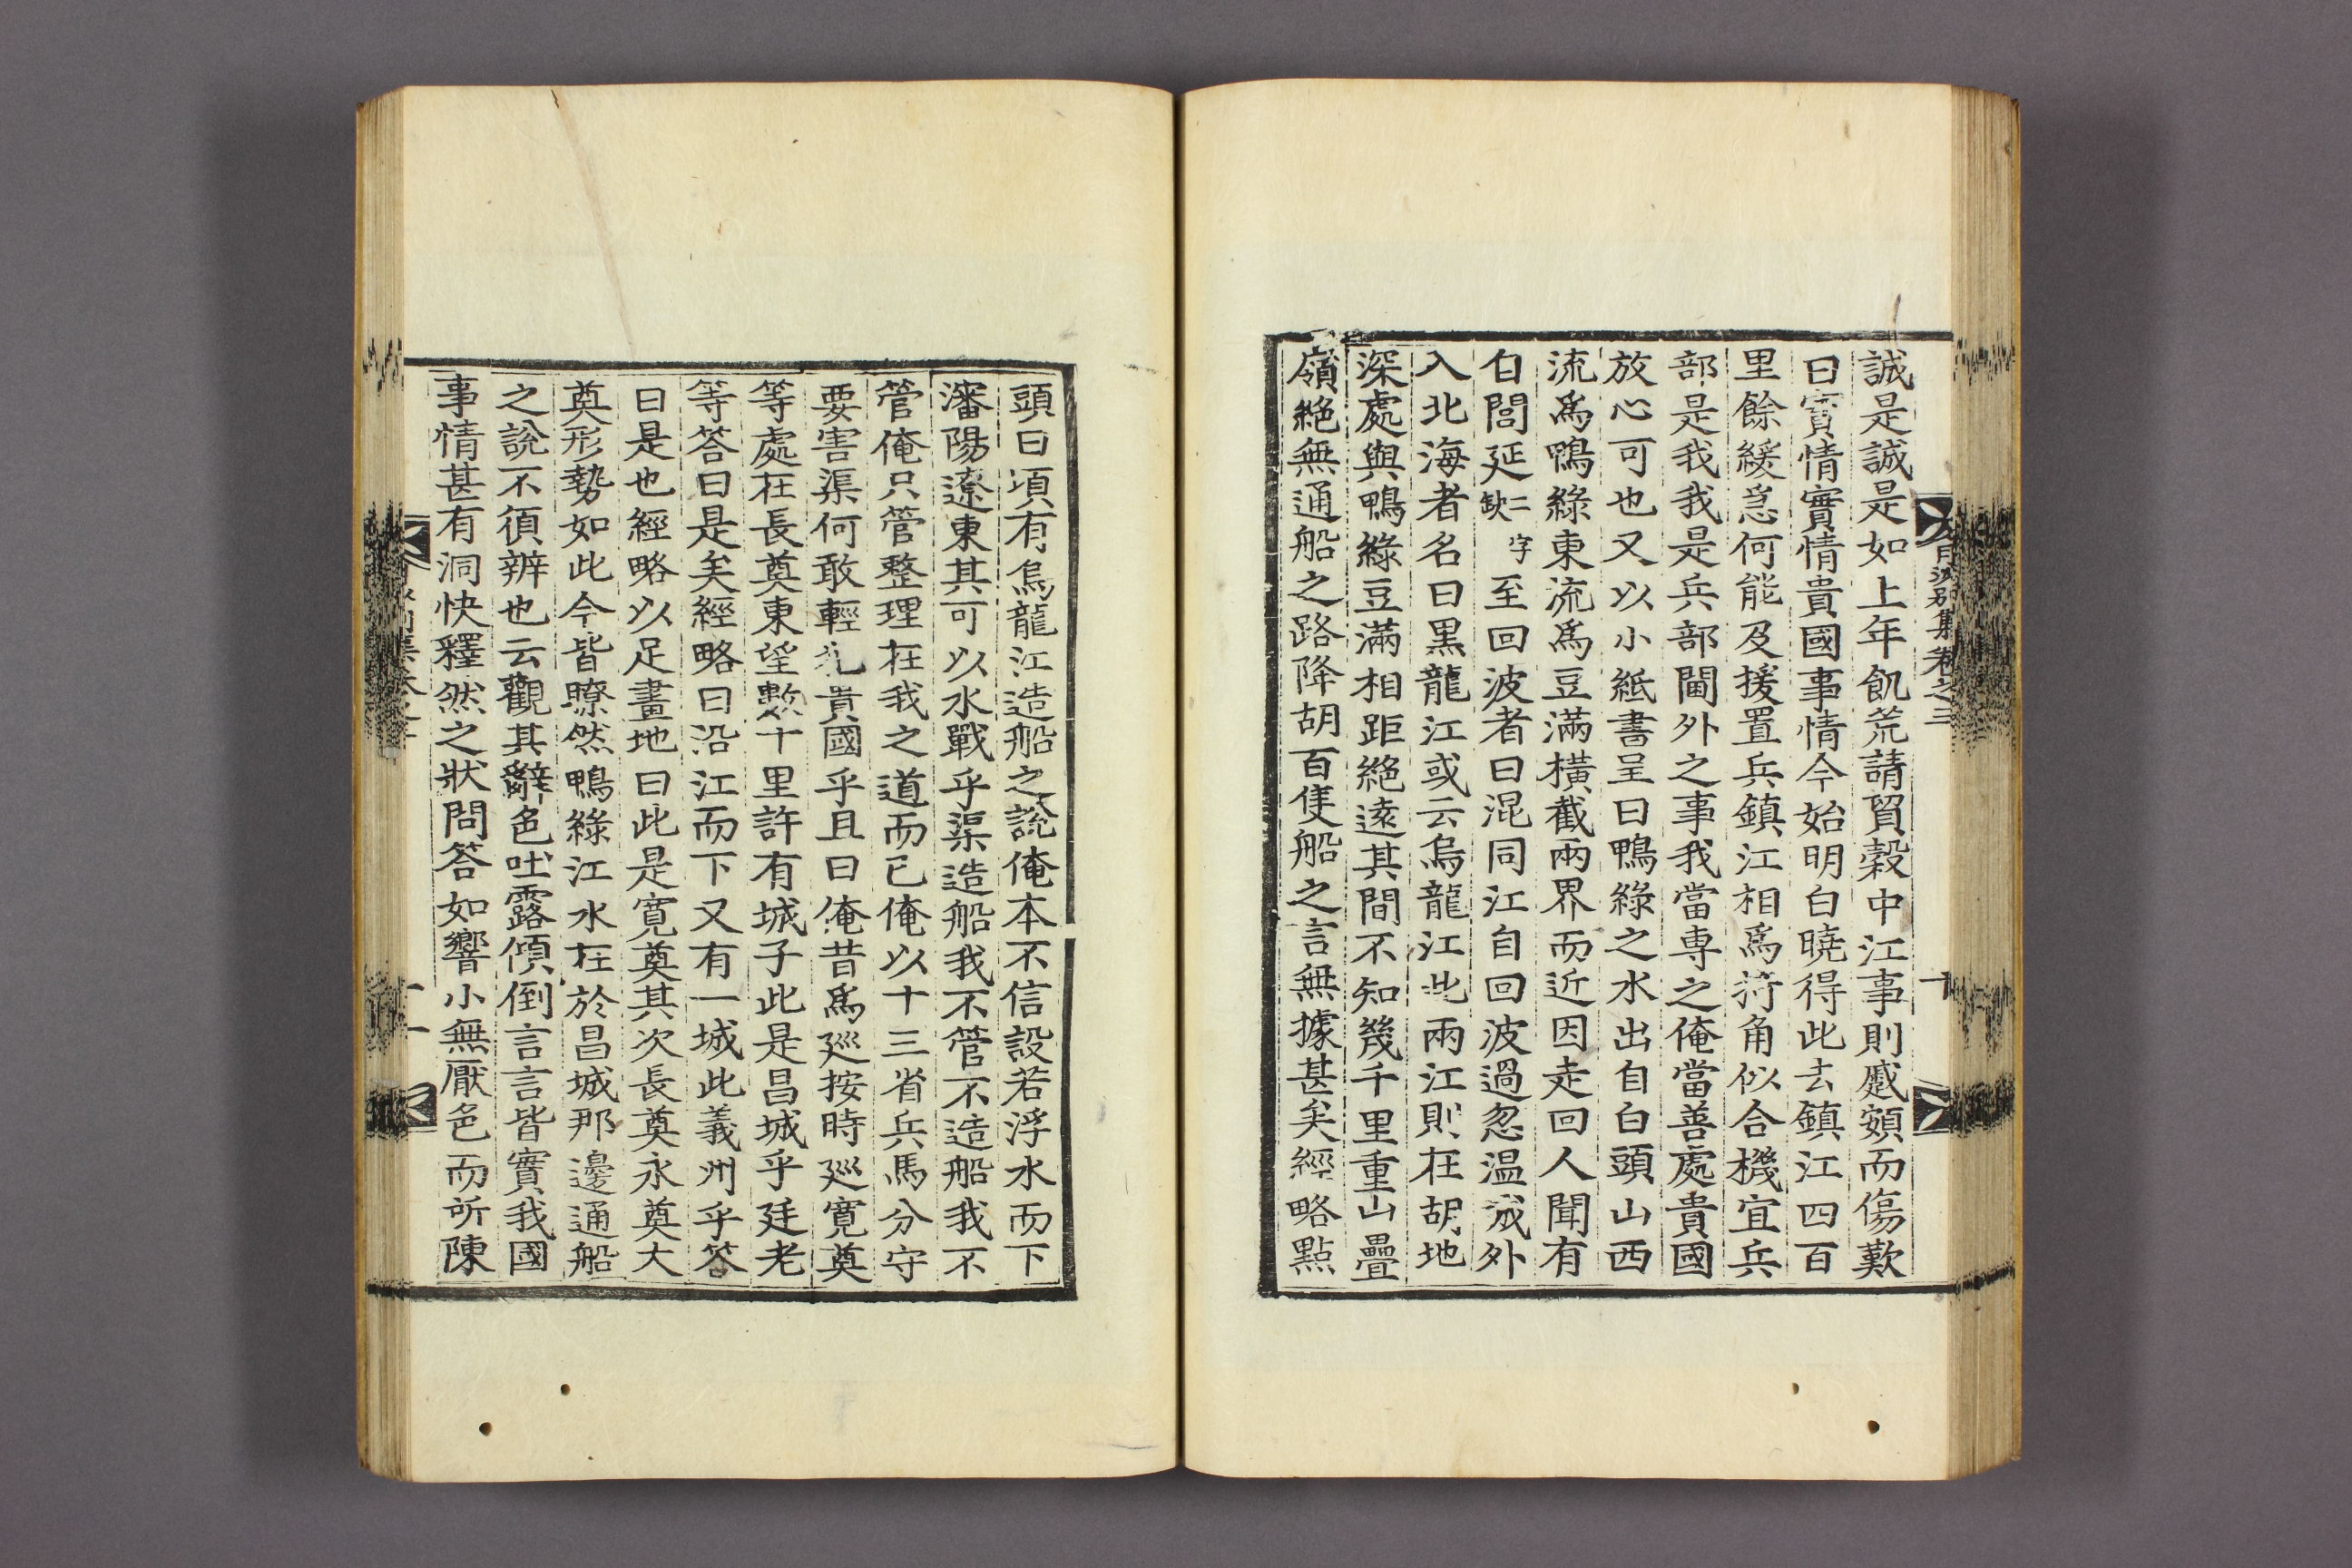 誠是誠是如上年飢荒請貿穀中江事則慼額而傷歎
曰實情實情貴國事情今始明白曉得此去鎮江四百
里餘緩急何能及援置兵鎮江相爲犄角似合機宜兵
部是我我是兵部閫外之事我當專之俺當善處貴國
放心可也又以小紙書呈曰鴨綠之水出自白頭山西
流爲鴨綠東流爲豆滿橫截兩界而近因走回人聞有
白閭延缺二字至回波者曰混同江自回波過忽温或外
入北海者名曰黑龍江或云烏龍江此兩江則在胡地
深處與鴨綠豆滿相距絶遠其間不知幾千里重山疊
嶺絶無通船之路降胡百隻船之言無據甚矣經略點
頭曰頃有烏龍江造船之說俺本不信設若浮水而下
瀋陽遼東其可以水戰乎渠造船我不管不造船我不
管俺只管整理在我之道而已俺以十三省兵馬分守
要害渠何敢輕犯貴國乎且曰俺昔爲廵按時廵寬奠
等處在長奠東望數十里許有城子此是昌城乎廷老
等答曰是矣經略曰沿江而下又有一城此義州乎答
曰是也經略以足畫地曰此是寬奠其次長奠永奠大
奠形勢如此今皆瞭然鴨綠江水在於昌城那邊通船
之說不須辨也云觀其辭色吐露傾倒言言皆實我國
事情甚有洞快釋然之狀問答如響小無厭色而所陳
別集卷之三
十
十一